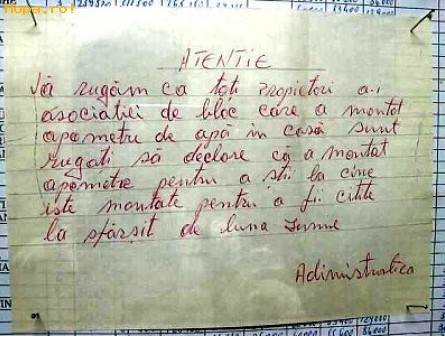 Hopa.ro!
ATENTIE
Vă rugăm ca toți Propietori a.i
asociatiei de bloc care a montat
apometru de apă în casă sunt
rugati să declare că a montat
apometre pentru a stii la cine
iste montate pentru a fii citite
la sfârșit de luna Iunie
Adiministratiea